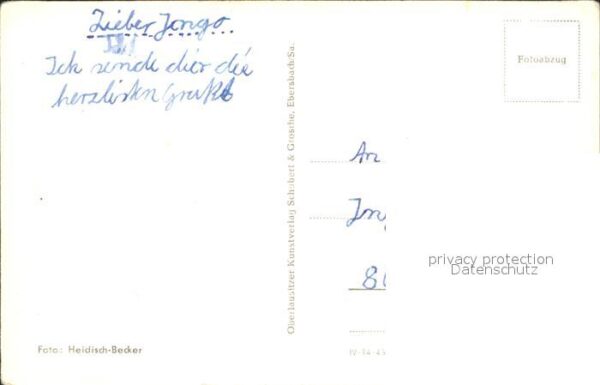 Lieber Jongo
Ich sende dier die
herzlisten
Fotoabzug
Oberlausitzer Kunstverlag Schubert & Grosche, Ebersbach/Sa.
An
privacy protection
Datenschutz
Foto: Heidisch-Becker